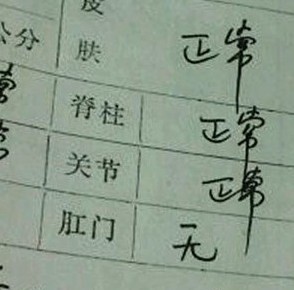 皮
公分 肤 正常
常 脊柱 正常
常 关节 正常
肛门 无